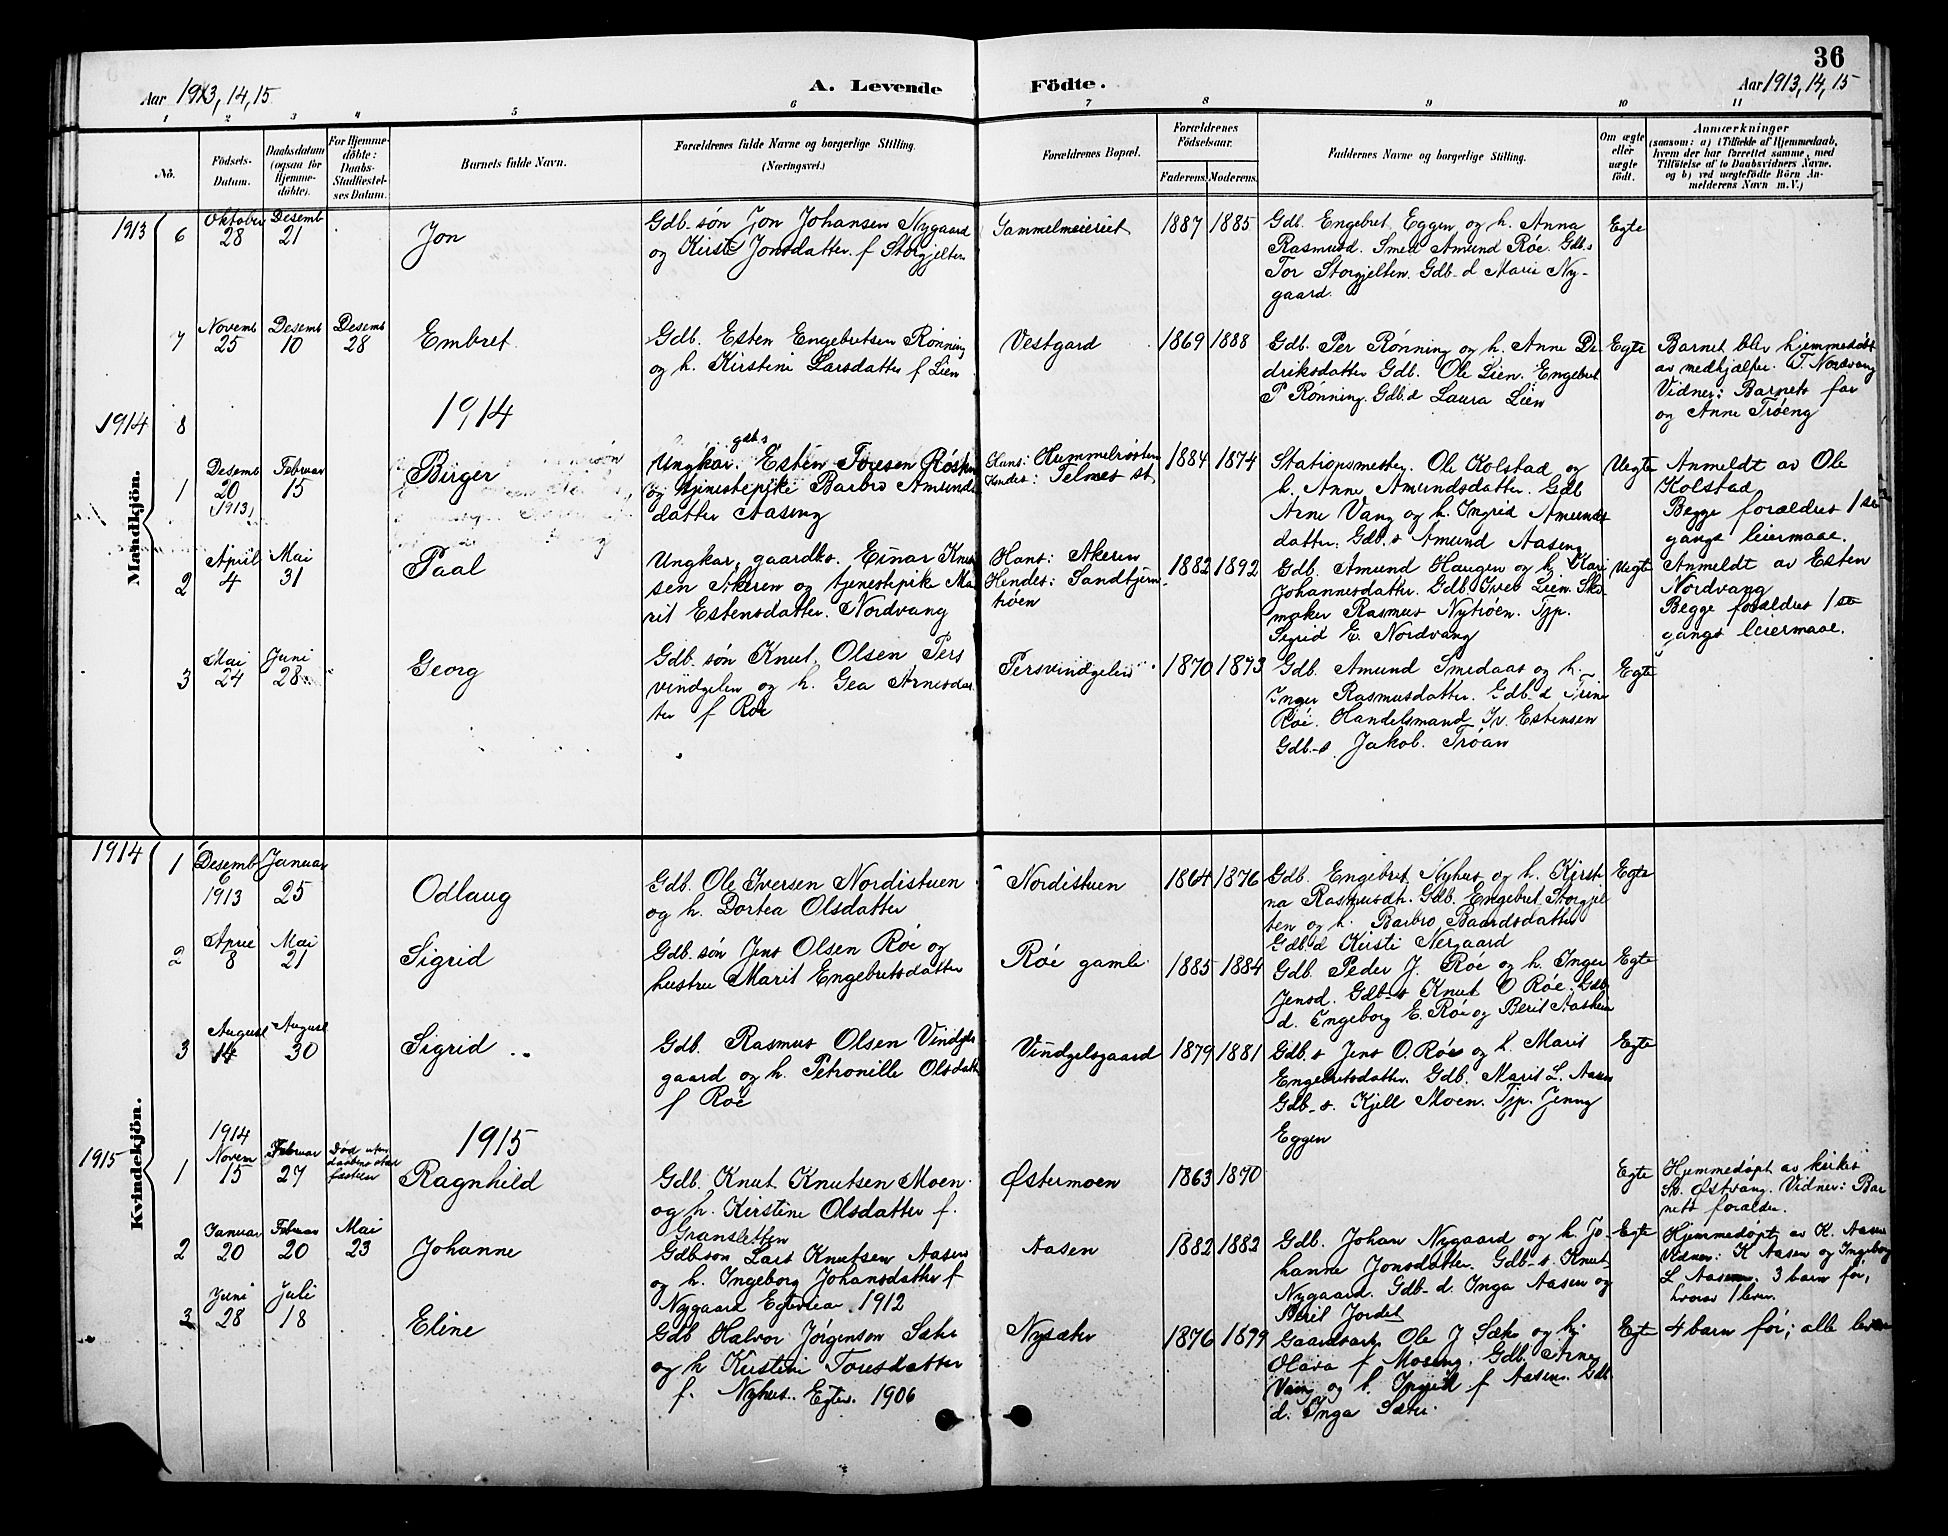 36
Aar 1913, 14, 15
A. Levende Födte.
Aar 1913, 14, 15
1 2 3 4 5 6 7 8 9 10 11
No.
Födsels-
Datum.
Daabsdatum
(ogsaa for
Hjemme-
döbte).
For Hjemme-
döbte:
Daabs-
Stadfæstel-
ses Datum.
Barnets fulde Navn.
Forældrenes fulde Navne og borgerlige Stilling.
(Næringsvei.)
Forældrenes Bopæl.
Forældrenes
Födselsaar.
Faderens. Moderens.
Faddernes Navne og borgerlige Stilling.
Om ægte
eller
uægte
født.
Anmærkninger
(saasom: a) i Tilfælde af Hjemmedaab,
hvem der har forrettet samme, med
Tilföielse af to Daabsvidners Navne,
og b) ved uægtefödte Börn An-
melderens Navn m. V.)
Mandkjön.
1913
6
Oktober
28
Desemb
21
Jon
Gdb. søn Jon Johansen Nygaard
og Kirsti Jonsdatter f Storgjelten
Sammelmeieriet
1887 1885
Gdb. Engebret Eggen og h. Anna
Rasmusd. Smed Amund Röe. Gdb. s
Tor Storgjelten. Gdb-d Marie Ny-
gaard.
Egte
7
Novemb
25
Desemb
10
Desemb
28
Embret
Gdb. Esten Engebretsen Rønning
og h. Kirstine Larsdatter f Lien
Vestgard
1869 1888
Gdb. Per Rønning og h. Anne De
driksdatter Gdb. Ole Lien. Engebret
P Rønning. Gdb. d Laura Lien
Egte
Barnet blev hjemmedøbt
av medhjælper T. Nordvang
Vidner: Barnets far
og Anne Trøeng
1914
8
1914
1
Desemb
20
(1913)
Februar
15
Birger
gdb s
Ungkar. Esten Toresen
og tjenestepike Barbro Amunds
datter Aaseng
Hans: Hummelrosten
Hendes: Telnes st
1884 1874
Stationsmester Ole Kolstad og
h. Anne Amundsdatter. Gdb
Arne Vang og h. Ingrid Amunds
datter. Gdb. s Amund Aaseng
Uegte
Anmeldt av Ole
Kolstad
Begge forældres 1ste
gangs leiermaal.
2
April
4
Mai
31
Paal
Ungkar, gaardb.s. Einar Knut
sen Akeren og tjenestepike Ma
rit Estensdatter Nordvang
Hans: Akeren
Hendes: Sandtjern
trøen
1882 1892
Gdb. Amund Haugen og h. Kari
Johannesdatter. Gdb Iver Lien. Sko
maker Rasmus Nytrøen. Tjp.
Sigrid E. Nordvang
Uegte
Anmeldt av Esten
Nordvang
Begge forældres 1ste
gangs leiermaal.
3
Mai
24
Juni
28
Georg
Gdb. søn Knut Olsen Pers
vindgelen og h. Gea Arnesdat
ter f Röe
Persvindgelen
1870 1873
Gdb. Amund Smedaas og h.
Inger Rasmusdatter. Gdb. d Trine
Röe. Handelsmand Iv. Estensen
Gdb.-s. Jakob Trøan
Egte
Kvindekjön.
1914
1
Desemb
6
1913
Januar
25
Odlaug
Gdb. Ole Iversen Nordistuen
og h. Dortea Olsdatter
Nordistuen
1864 1876
Gdb. Engebret Nyhus og h. Kirsti
na Rasmusdtr. Gdb. Engebret Storgjel
ten og h. Barbro Baardsdatter
Gdb. d Kirsti Nergaard
Egte
2
April
8
Mai
21
Sigrid
Gdb. søn Jens Olsen Röe og
hustru Marit Engebretsdatter
Röe gamle
1885 1884
Gdb. Peder J. Röe og h. Inger
Jensd. Gdb-s Knut O Röe. Gdb
d. Ingeborg E. Röe og Berit Aasheim
Egte
3
August
14
August
30
Sigrid
Gdb. Rasmus Olsen Vindgels
gaard og h. Petronille Olsdatt
f Röe
Vindgelsgaard
1879 1881
Gdb. s Jens O. Röe og h. Marit
Engebretsdatter. Gdb. Marit L. Aasen
Gdb-s. Kjell Moen. Tjp. Jenny
Eggen
Egte
1915
1915
1
1914
Novem
15
Februar
27
Død uten
daabens stad
fæstelse
Ragnhild
Gdb. Knut Knutsen Moen
og h. Kirstine Olsdatter f.
Gransletten
Østermoen
1863 1870
Egte
Hjemmedøpt av kirkes
. Østvang. Vidner: Bar
nets forældre.
2
Januar
20
Februar
20
Mai
23
Johanne
Gdbson Lars Knutsen Aasen
og h. Ingeborg Johansdatter f
Nygaard Egteviet 1912
Aasen
1882 1882
Gdb. Johan Nygaard og h. Jo-
hanne Jonsdatter. Gdb-s. Knut
Nygaard. Gdb-d. Inga Aasen og
Berit Jordet
Egte
Hjemmedøpt av K. Aasen
Vidner: K Aasen og Ingeborg
L Aasen. 3 barn før,
hvorav 1 lever.
3
Juni
28
Juli
18
Eline
Gdb Halvor Jørgensen Sæter
og h Kirstine Toresdatter
f. Nyhus. Egtev. 1906
Nysæter
1876 1879
Ole J Sæter og h.
Olava f Moseng. Gdb. Arne
Vang og h. Ingrid f Aasen. Gdb.
d. Inga Sæter.
Egte
4 barn før; alle lever